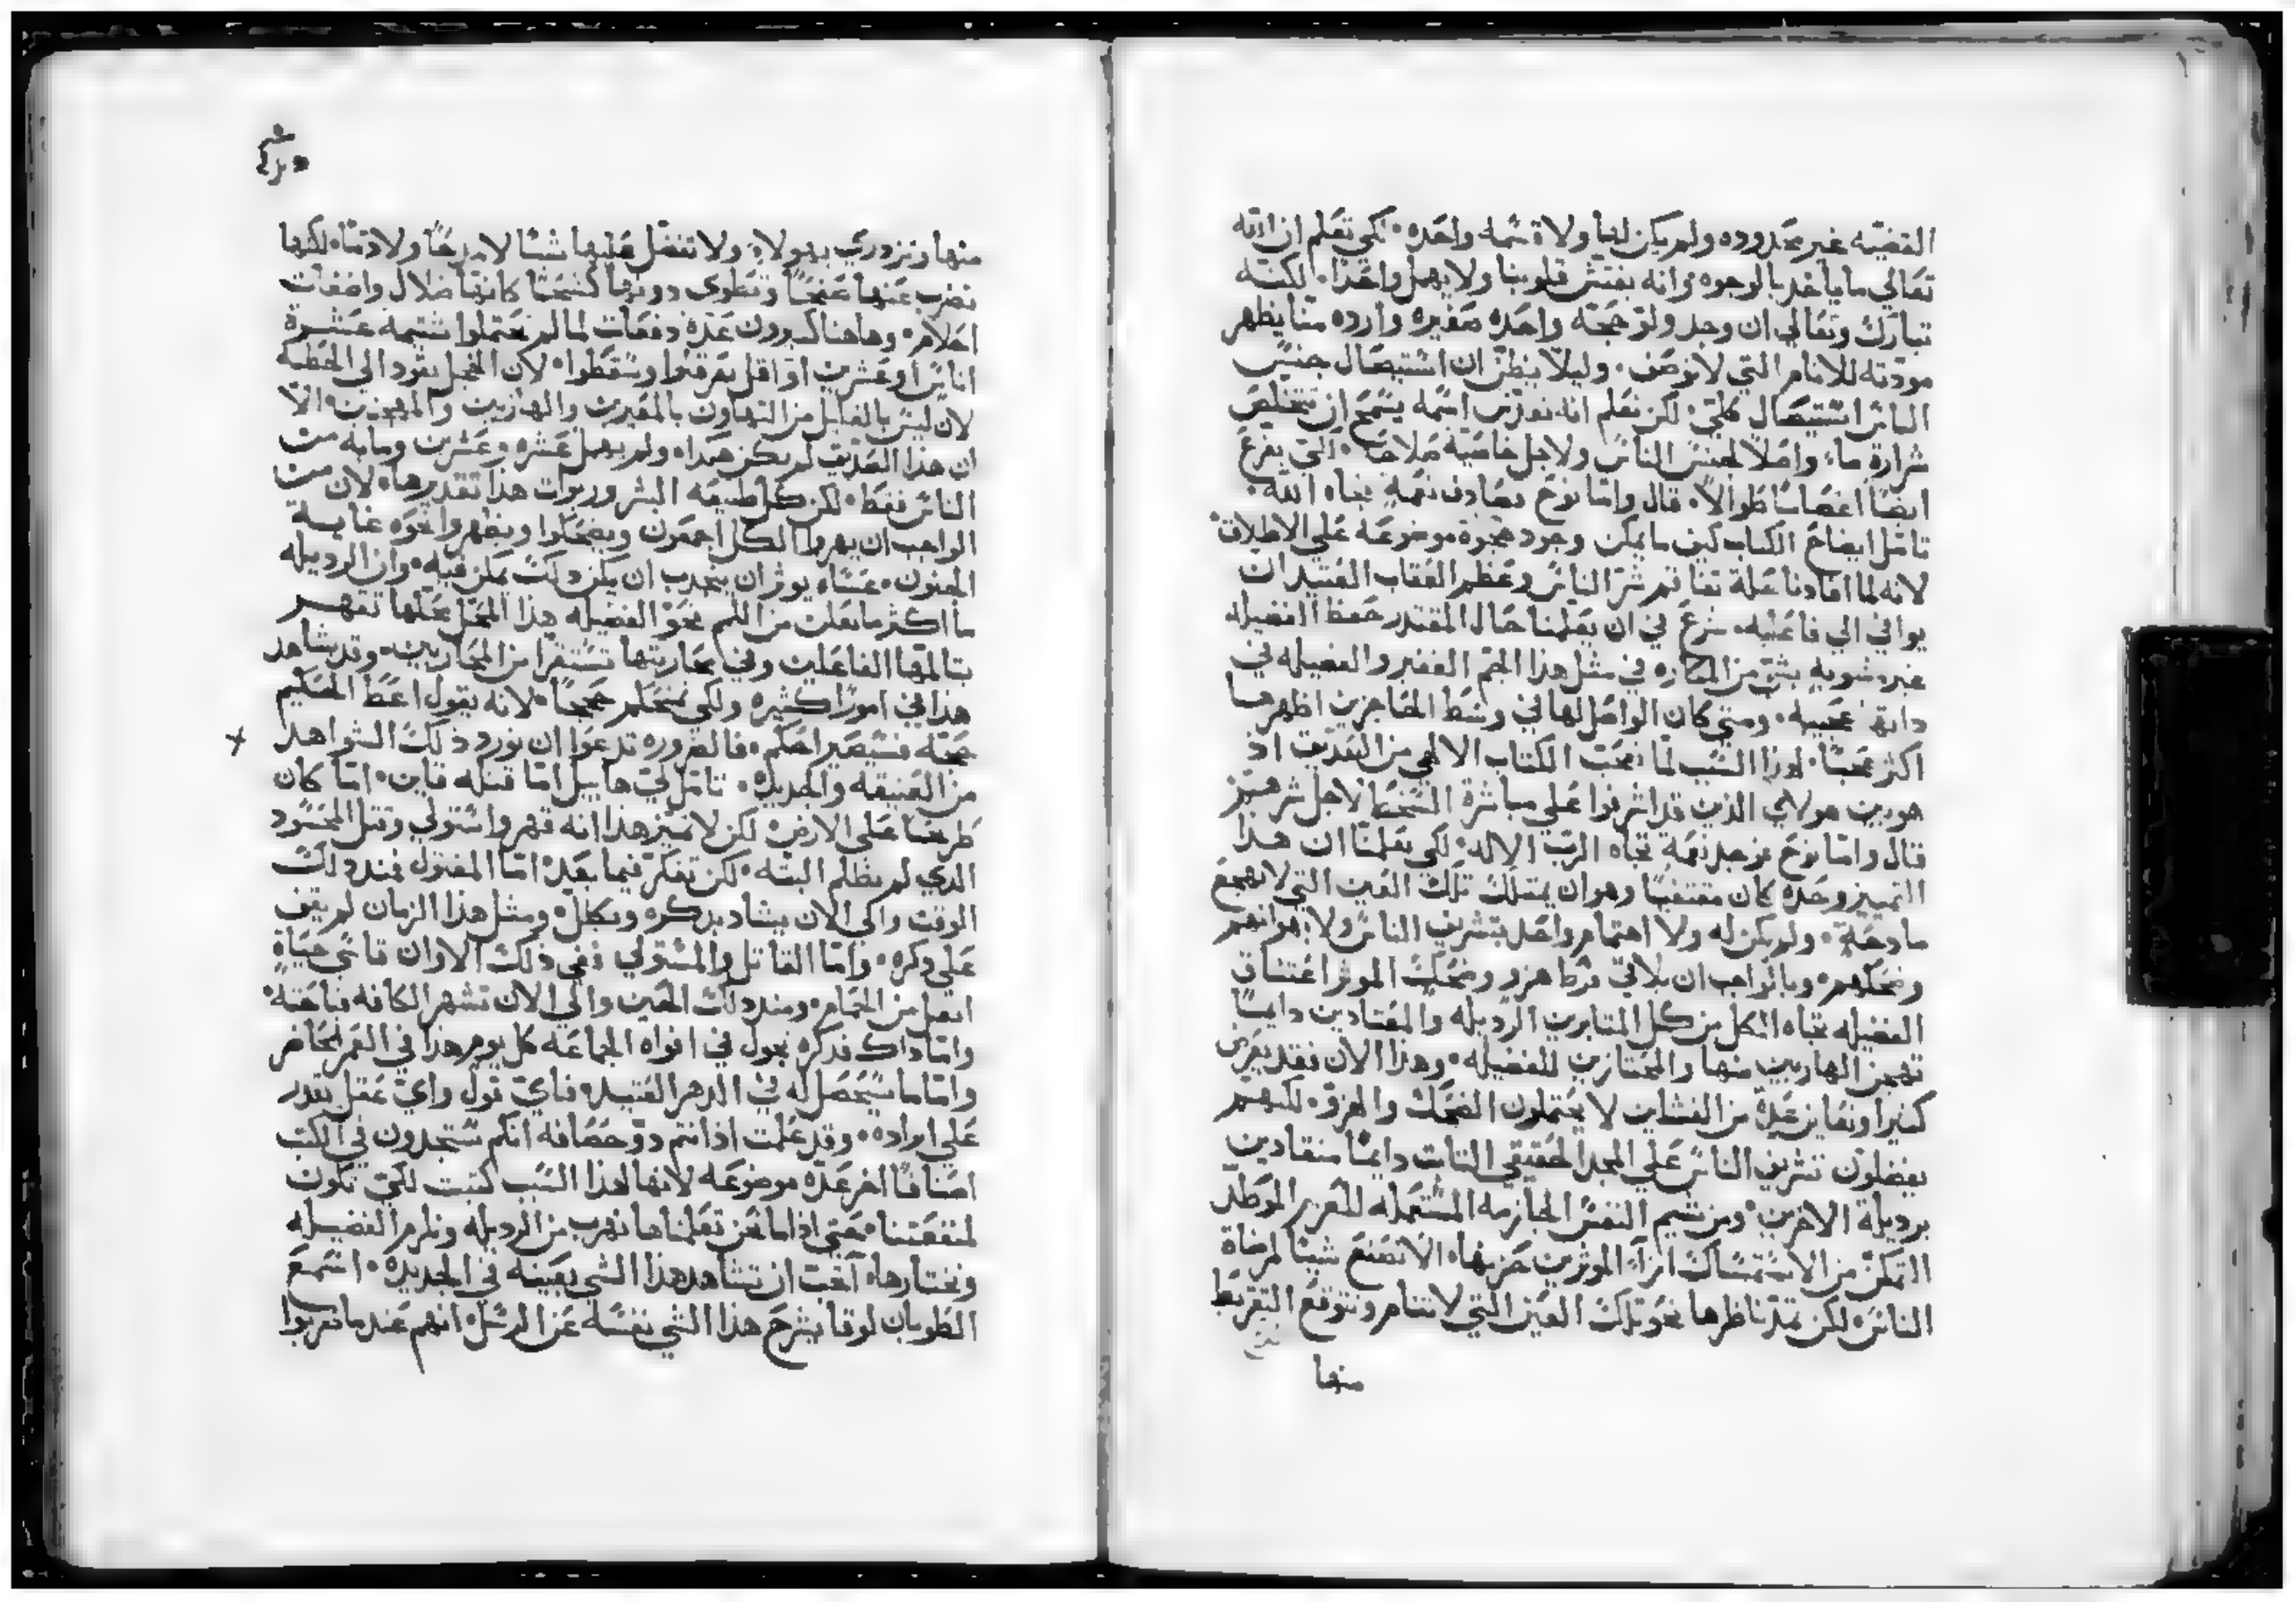 القضيه غير محدوده ولم يكن لها ولا قسمه واحده · لكي تعلم ان الله
تعالي ما ياخد بالوجوه وانه يفتش قلوبنا ولا يهمل واحدًا · لكنه
تبارك وتعالي ان وجد ولو حجته واحده صغيره وارده منا يظهر
مودته للانام التي لا توصف · وليلا يظن ان استيصال جنس
الناس استيصال كلي · لكن نعلم انه نعزز اسمه يسمح ان تتخلص
شرارة ما · واصلا لجنس الناس ولاجل خاصية صلاحه · التي يفرع
ايضا اغصانا طوالا · قال واما نوح صادف نعمة تجاه الله ·
تامل ايضاح الكتاب كيف ما يمكن وجود هجوة موضوعه علي الاطلاق ·
لانه لما افادنا علة تفاقم شر الناس وعظم العقاب العتيد ان
يوافي الي فاعليه · شرع في ان يعلمنا حال المقتدر حفظ الفضيله
غير مشوبه بشي من المكاره في مثل هذا الجم الغفير والفضيله في
داتها عجيبه · ومتي كان الواصل لها في وسط الضاجرين اظهرها
اكثر عجبا · لهذا السبب لما تعجب الكتاب الالهي من الصديق اذ
هو بين هولاي الذين قد اشرفوا علي مباشرة السخط لاجل شرهم
قال واما نوح فوجد نعمة تجاه الرب الاله · لكي يعلمنا ان هذا
التمييز وحده كان مقتفيا وهو ان يمتلك تلك العين التي لا تهجع
مادحة · ولم يكن له ولا اهتمام واحد بتشريف الناس ولا بهوانهم
وضحكهم · وبالواجب ان يلاقي مركا هزو وضحك الموثر اعتناق
الفضيله تجاه الكل من كل المثابرين الرديله والمعتادين دايما
تهجين الهاربين منها والمختارين للفضيله · وهذا الان فقد يعرض
كثيرا ونعاين عدة من الفشلين لا يحتملون الضحك والهزو · لكنهم
يفضلون تشريف الناس علي المجد الحقيقي الثابت دايما منقادين
برديلة الاخرين · ومن شيم النفس الحازمه المستعمله للعزم الموطد
التمكن من الاستمساك ازا الموثرين حزنها · الا تصنع شيئا لمرضاة
الناس · لكن تمد ناظرها نحو تلك العين التي لا تنام وتتوقع التقريظ
منها
منها وتزدري بهولاء · ولا تفضل عليها شيئا لا مدحا ولا دما · لكنها
تضرب عنها صفحًا وتطوي دونها كشحًا كانها ضلال واضغات
احلام · وهاهنا كثيرون عدة دفعات لما لم يحتملوا شتيمة عشرة
اناس او عشرين او اقل يعرقلوا وسقطوا · لان الخجل يقود الي الخطيه
لان ليس بالقليل من التهاون بالمعيرين والهازيين والمهجنين · الا
ان هذا الصديق لم يكن هكدا · ولم يهمل عشره وعشرين ومايه من
الناس فقط · لكن كل طبيعة البشر وربوات هدا تقديرها · لان من
الواجب ان يهزوا الكل اجمعون ويضحكوا ويظهروا نحوه غاية
الجنون · عساه يوثران ينجدب ان يكن دلك يمكن فيه · وان الرديله
ما اكثر ما تعلت من اللم نحو الفضيله هذا المحل محلها تقهر
بتالمها الفاعلين وفي محاربتها تستقرا من المحاربين · وقد يشاهد
هذا في امورًا كثيره ولكي نمنحكم حججًا · لانه يقول اعط الحكيم
حجته فسيصير احكم · فالضروره تدعوا ان نورد ذلك الشواهد
من العتيقه والجديده · تامل لي هابيل اما قتله قاين · اما كان
طريحا علي الارض · لكن لا تميز هذا انه قهر واستولي وقتل المحسود
الدي لم يظلم البته · لكن تفكر فيما بعد · اما المقتول فمند دلك
الوقت والي الان يشاد بدكره ويكلل · ومثل هذا الزمان لم يقف
علي دكره · واما القاتل والمستولي ففي ذلك الاوان قاسي حياة
اثقل من الحمام · ومند دلك الحين والي الان تشهر الكافه قباحته ·
واما داك فدكره يجول في افواه الجماعه كل يوم هذا في العمر الحاضر
واما ما سيحصل له في الدهر العتيد · فاي قول واي عقل يقدر
علي ايراده · وقد علمت اذ انتم دو حصافه انكم ستجدون في الكتب
اصنافًا اخر عدة موضوعه لانها لهذا السبب كتبت لكي تكون
لمنفعتنا · حتي اذا ما نحن تعلمناها نهرب من الرديله ونلزم الفضيله
ونختارها · احببت ان تشاهد هذا الشي بعينه في الجديده · اسمع
الطوبان لوقا يشرح هذا الشي نفسه عن الرسل · انهم عند ما ضربوا